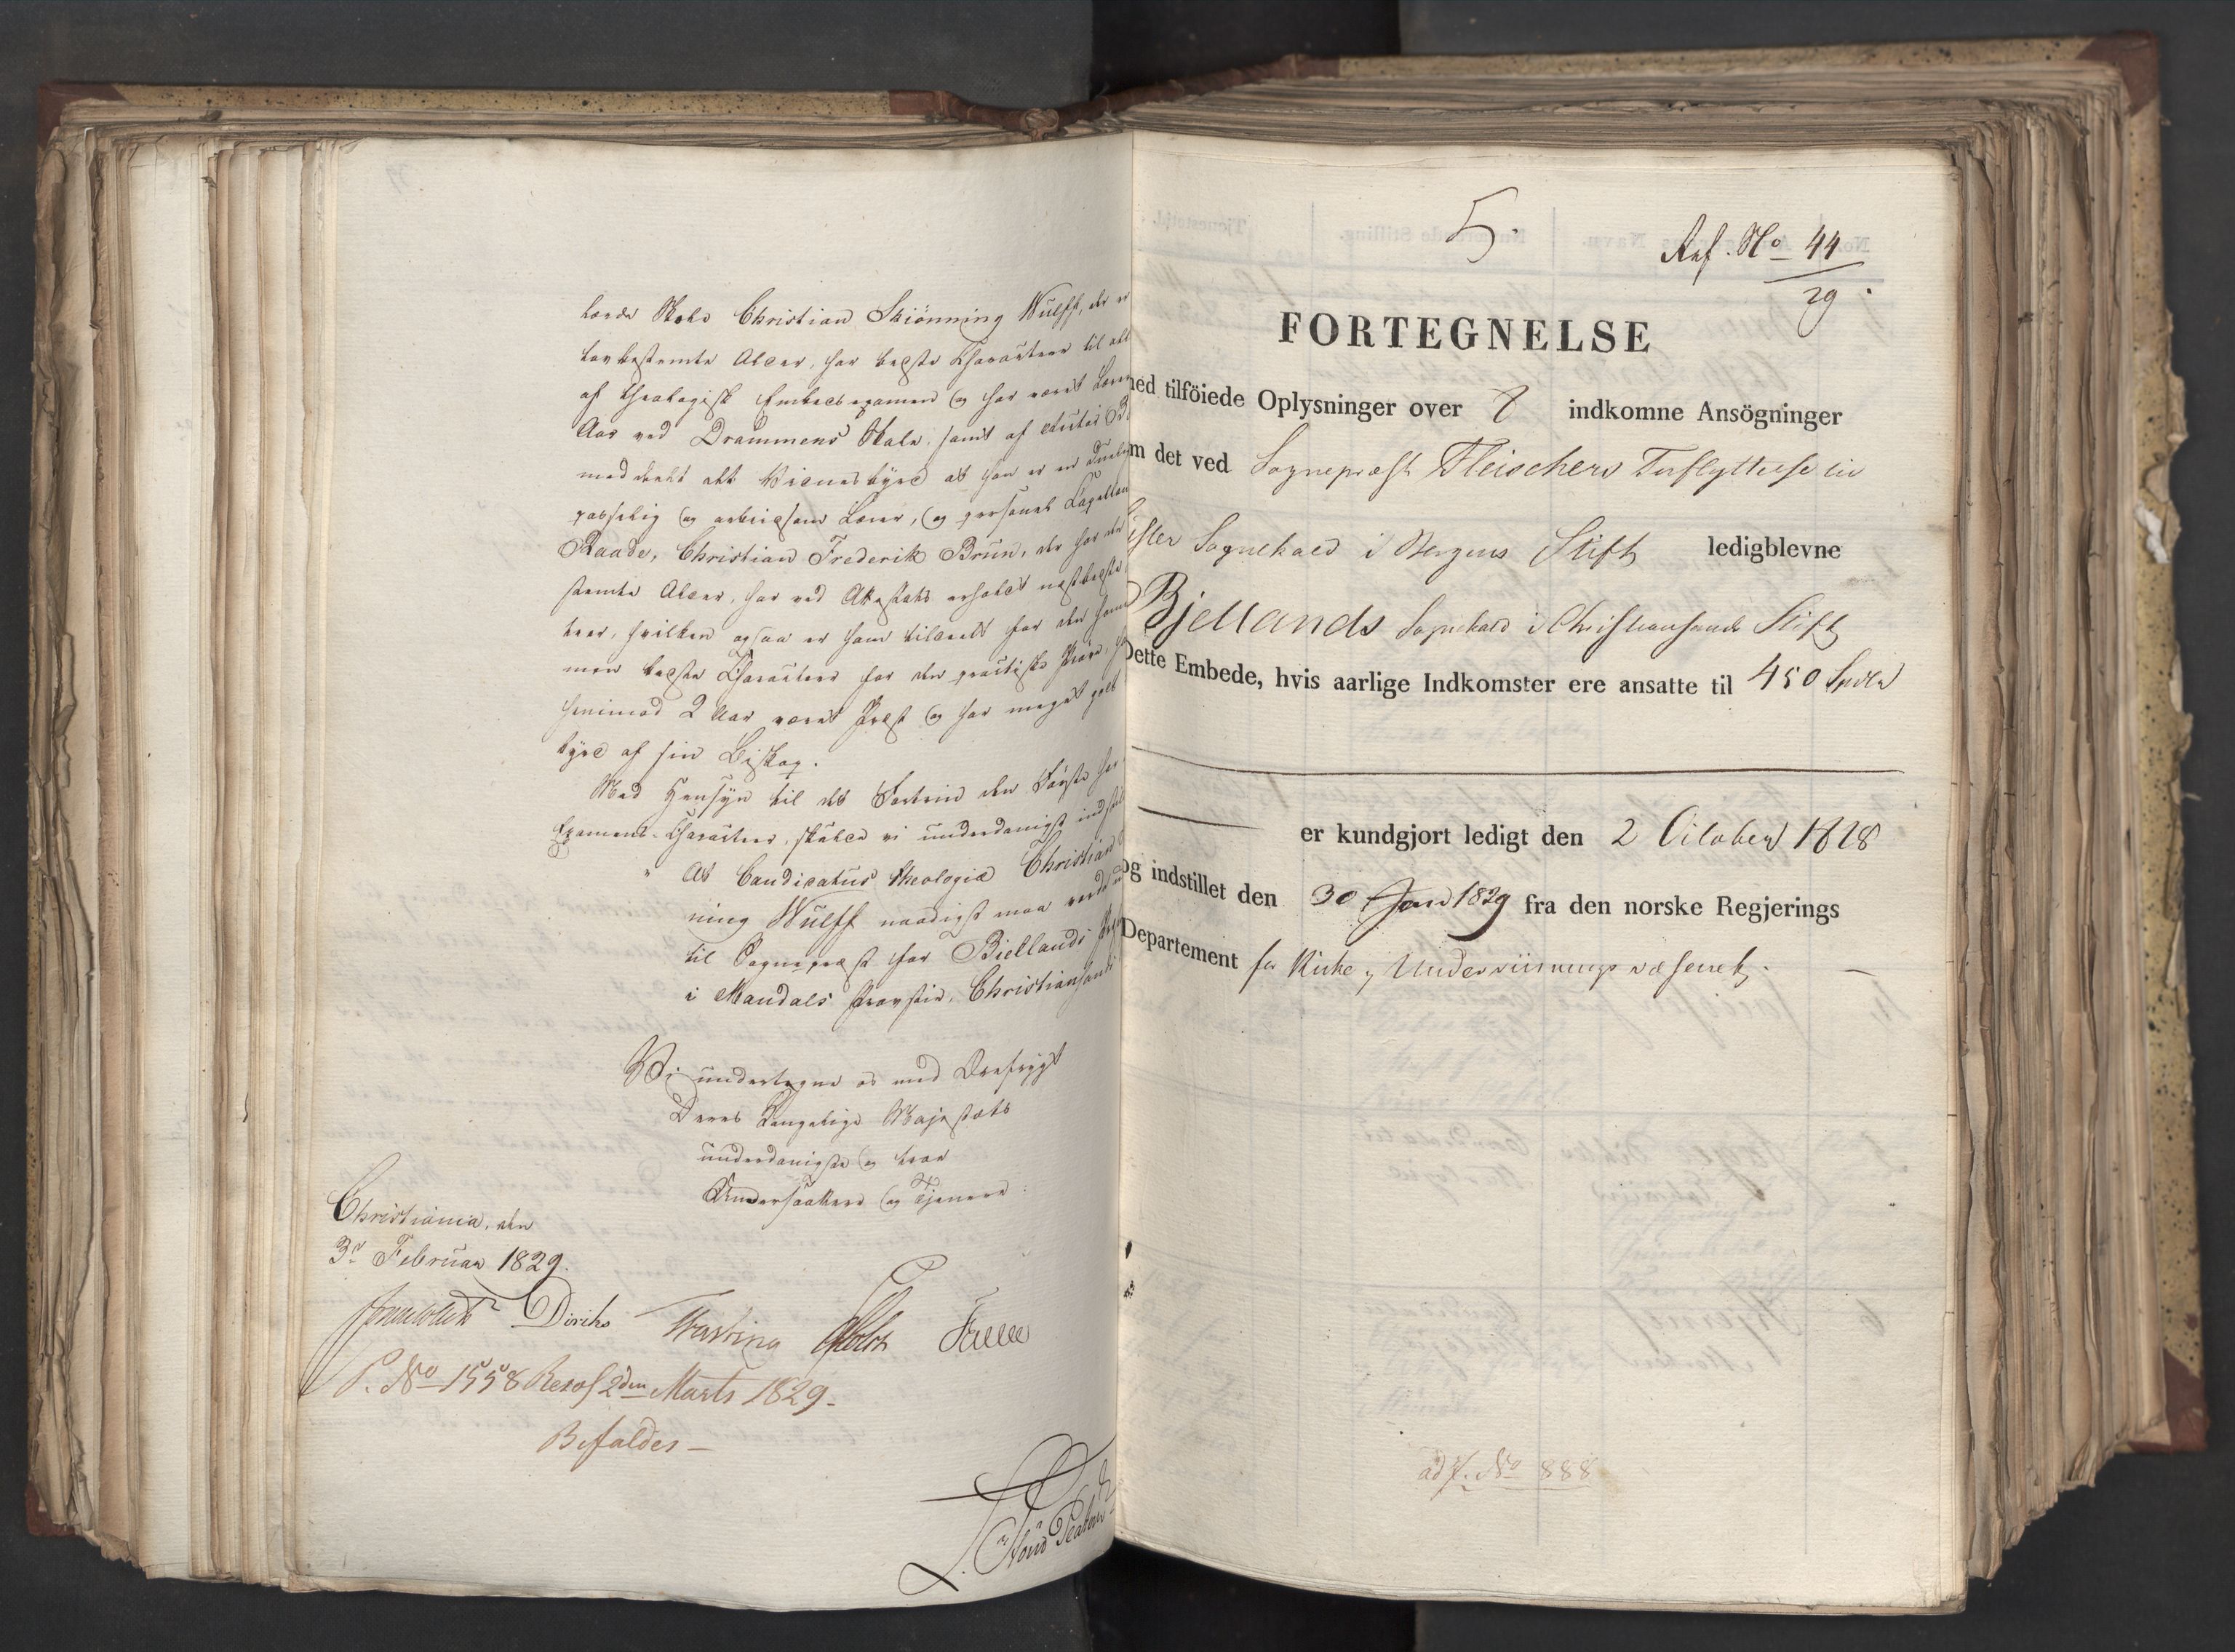 lærde Skole Christian Skiönning Wulff, der er
lovbestemte Alder, har bedste Charakteer til alt
af theologisk Embedsexamen og har været Lærer
Aar ved Drammens Skole, samt af
meddeelt det Vidnesbyrd at han er en duelig
og arbeidsom Lærer, og personel Capellan
Raade, Christian Frederik Brun, der har den
stemte Alder, har ved Attestats erholdt næstbedste
teer, hvilken ogsaa er ham tildeelt for den
men bedste Charakteer for den practiske Prøve,
henimod 2 Aar været Præst og har meget godt
byrd af sin Biskop.
Med Hensyn til det Fortrin den Første har
Examens-Charakteer, skulde vi underdanigst indstille
" At Candidatus theologiæ Christian
ning Wulff naadigst maa vorde
til Sognepræst for Biellands
i Mandals Provstie, Christiansands
Vi undertegne os med Ærefrygt
Deres Kongelige Majestæts
underdanigste og troe
Undersaatter og Tjenere
Christiania, den
3d Februar 1829.
Diriks Krebs Holst Falsen
P. No 1558 Resol 2den Marts 1829.
Bifaldes—
5.
Ref. No 44
29.
FORTEGNELSE
med tilföiede Oplysninger over 8 indkomne Ansögninger
om det ved Sognepræst Fleischers Forflyttelse til
Sognekald i Bergens Stift ledigblevne
Bjellands Sognekald i Christiansands Stift
Dette Embede, hvis aarlige Indkomster ere ansatte til 450 Spdlr
er kundgjort ledigt den 2 October 1828
og indstillet den 30 Jan 1829 fra den norske Regjerings
Departement for Kirke og Underviisningsvæsenet.
ad J. No 888